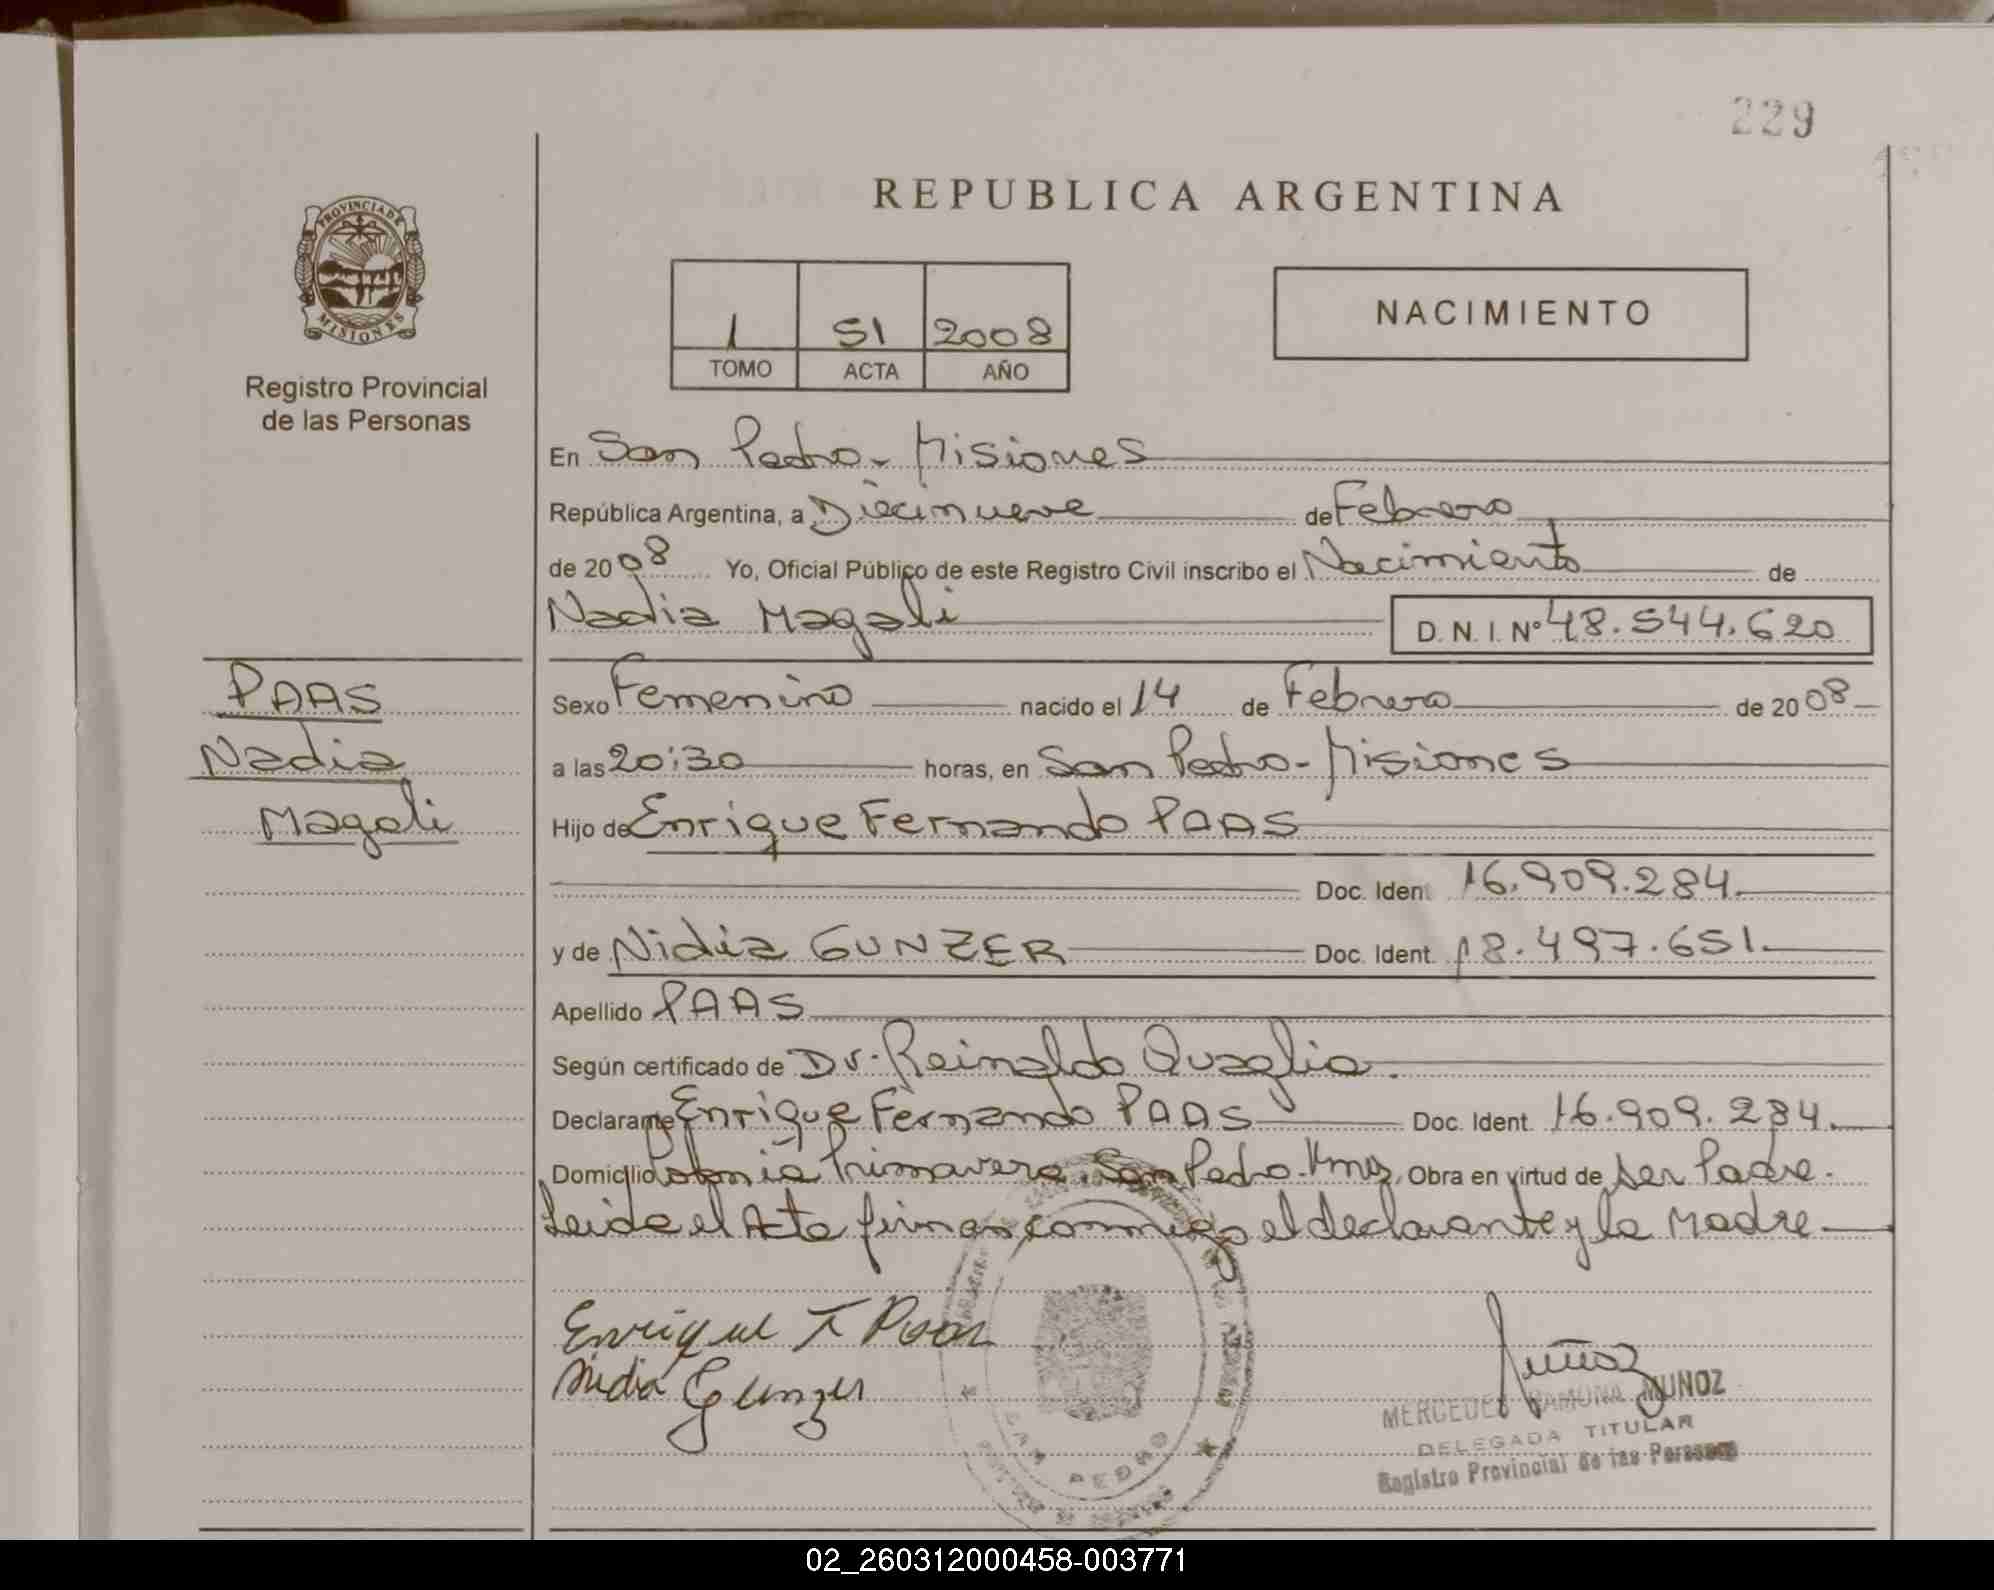 229
REPUBLICA ARGENTINA
PROVINCIA DE
MISIONES
Registro Provincial
de las Personas
1 51 2008
TOMO ACTA AÑO
NACIMIENTO
En San Pedro - Misiones
República Argentina, a Diecinueve de Febrero
de 2008 Yo, Oficial Público de este Registro Civil inscribo el Nacimiento de
Nadia Magali D. N. I. Nº 48.544.620
PAAS
Nadia
Magali
Sexo Femenino nacido el 14 de Febrero de 2008
a las 20:30 horas, en San Pedro - Misiones
Hijo de Enrique Fernando PAAS
Doc. Ident 16.909.284.
y de Nidia GUNZER Doc. Ident. 18.497.651.
Apellido PAAS
Según certificado de Dr. Reinaldo Quaglia.
Declarante Enrique Fernando PAAS Doc. Ident. 16.909.284.
Domicilio Colonia Primavera San Pedro. Mnes, Obra en virtud de ser Padre.
Leida el Acta firman conmigo el declarante y la Madre
Enrique F Paas
Nidia Gunzer
Muñoz
MERCEDES RAMONA MUNOZ
DELEGADA TITULAR
Registro Provincial de las Personas
SAN PEDRO
02_260312000458-003771